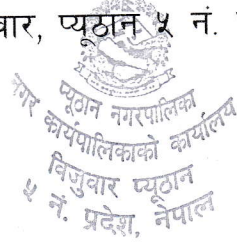 वार, प्यूठान ५ नं.
प्यूठान नगरपालिका
नगर कार्यपालिकाको कार्यालय
विजुवार प्यूठान
५ नं. प्रदेश, नेपाल